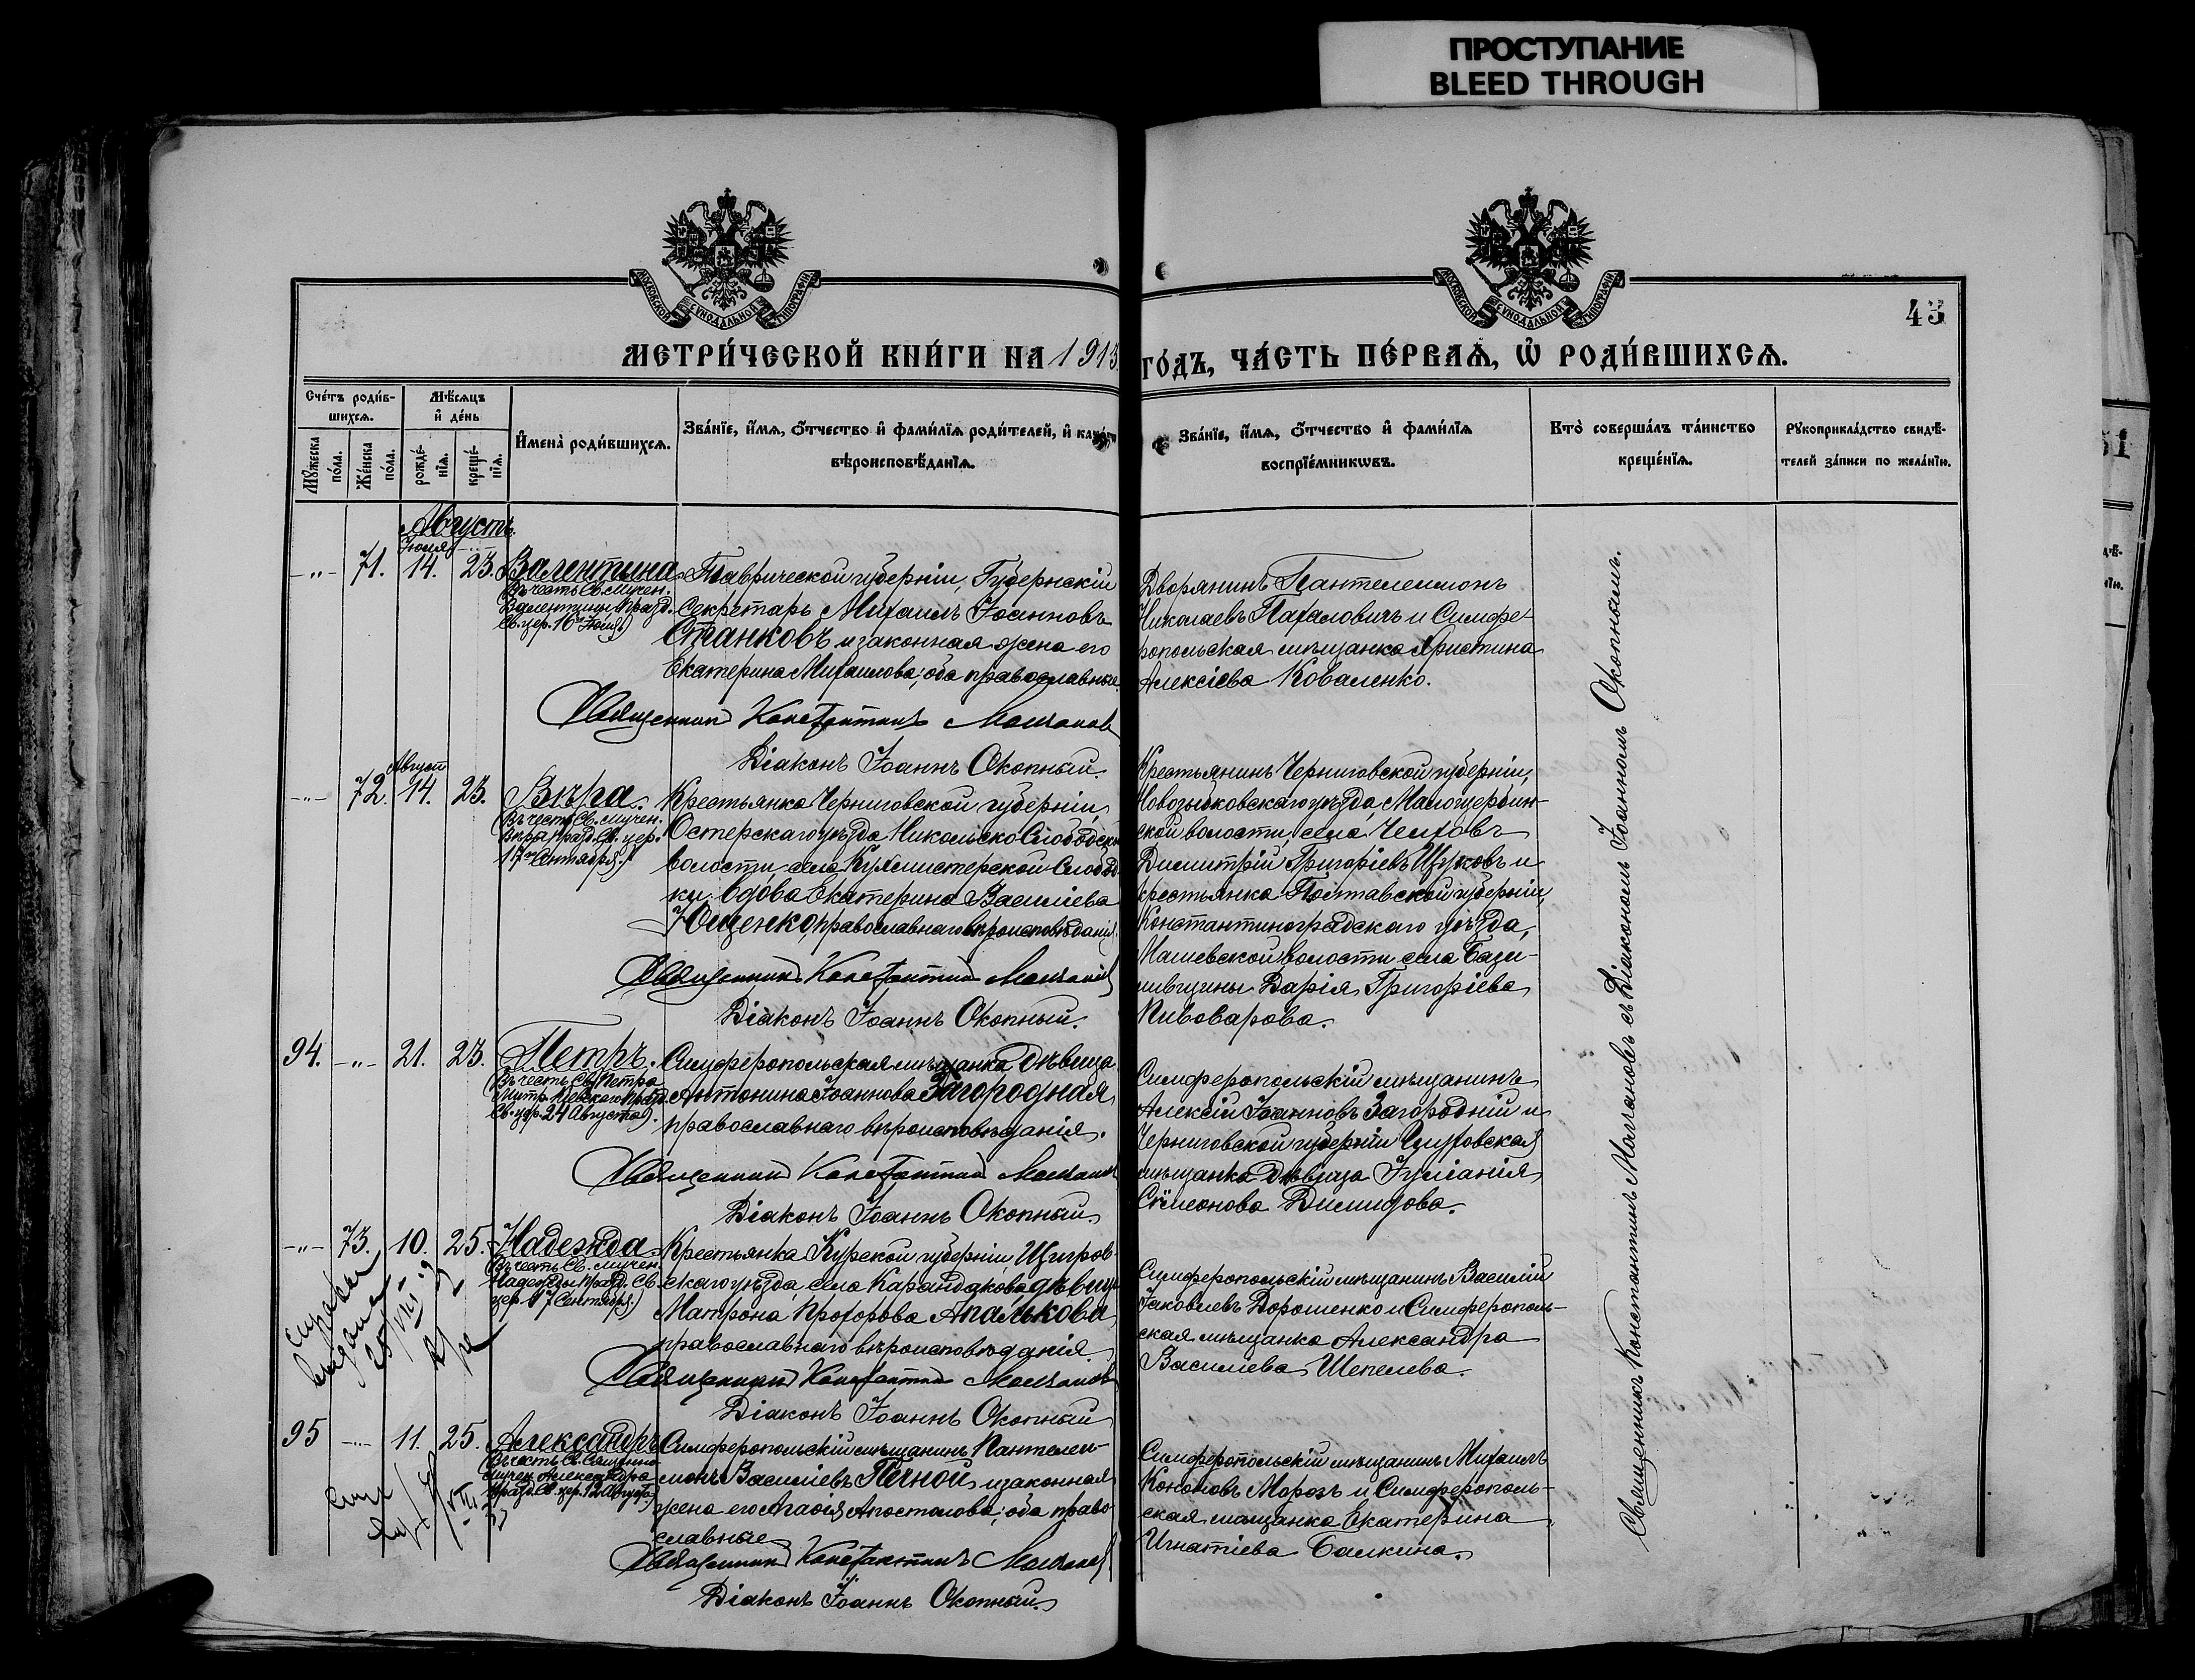 ПРОСТУПАНИЕ
BLEED THROUGH
МОСКОВСКОЙ СѴНОДАЛЬНОЙ ТИПОГРАФІИ
МОСКОВСКОЙ СѴНОДАЛЬНОЙ ТИПОГРАФІИ
45
МЕТРИ́ЧЕСКОЙ КНИ́ГИ НА 1913
ГО́ДЪ, ЧА́СТЬ ПЕ́РВАѦ, Ѡ҆ РОДИ́ВШИХСѦ.
Сче́тъ роди́в-
шихсѧ.
Мꙋ́жеска по́ла.
Же́нска по́ла.
Мѣ́сѧцъ
и҆ де́нь
рожде́-
нїѧ.
креще́-
нїѧ.
И҆мена̀ роди́вшихсѧ.
Зва́нїе, и҆́мѧ, ѻ҆́тчество и҆ фами́лїѧ роди́телей, и҆ како́гѡ
вѣроисповѣ́данїѧ.
Зва́нїе, и҆́мѧ, ѻ҆́тчество и҆ фами́лїѧ
воспрїе́мникѡвъ.
Кто̀ соверша́лъ та́инство
креще́нїѧ.
Рꙋкоприкла́дство свидѣ́-
телей за́писи по жела́нїю.
Августъ.
Іюля
-"- 71. 14. 23. Валентина
Въ честь Св. мучен.
Валентины празд.
Св. цер. 16го Іюля)
Таврической губерніи, Губернскій
Секретарь Михаилъ Іоанновъ
Станковъ и законная жена его
Екатерина Михаилова; оба православные.
Священникъ Константинъ Молчановъ
Діаконъ Іоаннъ Окопный.
Дворянинъ Пантелеимонъ
Николаевъ Пахаловичъ и Симфе-
ропольская мѣщанка Христина
Алексіева Коваленко.
Август
-"- 72. 14. 23. Вѣра.
Въ честь Св. мучен.
Вѣры празд. Св. цер.
17го Сентября)
Крестьянка Черниговской губерніи,
Остерскаго уѣзда Никольско-Слободской
волости села Кухмистерской Слобод-
ки вдова Екатерина Василіева
Ющенко, православнаго вѣроисповѣданія.
Священникъ Константинъ Молчановъ
Діаконъ Іоаннъ Окопный.
Крестьянинъ Черниговской губерніи,
Новозыбковскаго уѣзда, Малощербин-
ской волости села Чеховъ
Димитрій Григоріевъ Щуковъ и
крестьянка Полтавской губерніи,
Константиноградскаго уѣзда,
Машевской волости села Бази-
ливщины Дарія Григоріева
Пивоварова.
94. -"- 21. 23. Петръ.
Въ честь Св. Петра
Митр. Кіевскаго празд.
Св. цер. 24 Августа).
Симферопольская мѣщанка дѣвица
Антонина Іоаннова Загородная
православнаго вѣроисповѣданія.
Священникъ Константинъ Молчановъ
Діаконъ Іоаннъ Окопный.
Симферопольскій мѣщанинъ
Алексій Іоанновъ Загородній и
Черниговской губерніи Глуховская
мѣщанка дѣвица Іуліанія
Симеонова Димидова.
-"- 73. 10. 25. Надежда.
Въ честь Св. мучен.
Надежды празд. Св.
цер. 17 Сентября.)
Крестьянка Курской губерніи Щигров-
скаго уѣзда села Карандакова дѣвица
Матрона Прохорова Апалькова
православнаго вѣроисповѣданія.
Священникъ Константинъ Молчановъ
Діаконъ Іоаннъ Окопный
Симферопольскій мѣщанинъ Василій
Іаковлевъ Дорошенко и Симферополь-
ская мѣщанка Александра
Василіева Шепелева.
95 -"- 11. 25. Александръ
Въ честь Св. Священно
мучен. Александра
празд. Св. цер. 12 Августа)
Симферопольскій мѣщанинъ Пантелеи-
монъ Василіевъ Печной и законная
жена его Агафія Апостолова; оба право-
славные
Священникъ Константинъ Молчановъ
Діаконъ Іоаннъ Окопный.
Симферопольскій мѣщанинъ Михаилъ
Кононовъ Морозъ и Симферополь-
ская мѣщанка Екатерина
Игнатіева Балкина.
Священникъ Константинъ Молчановъ съ Діакономъ Іоанномъ Окопнымъ.
51